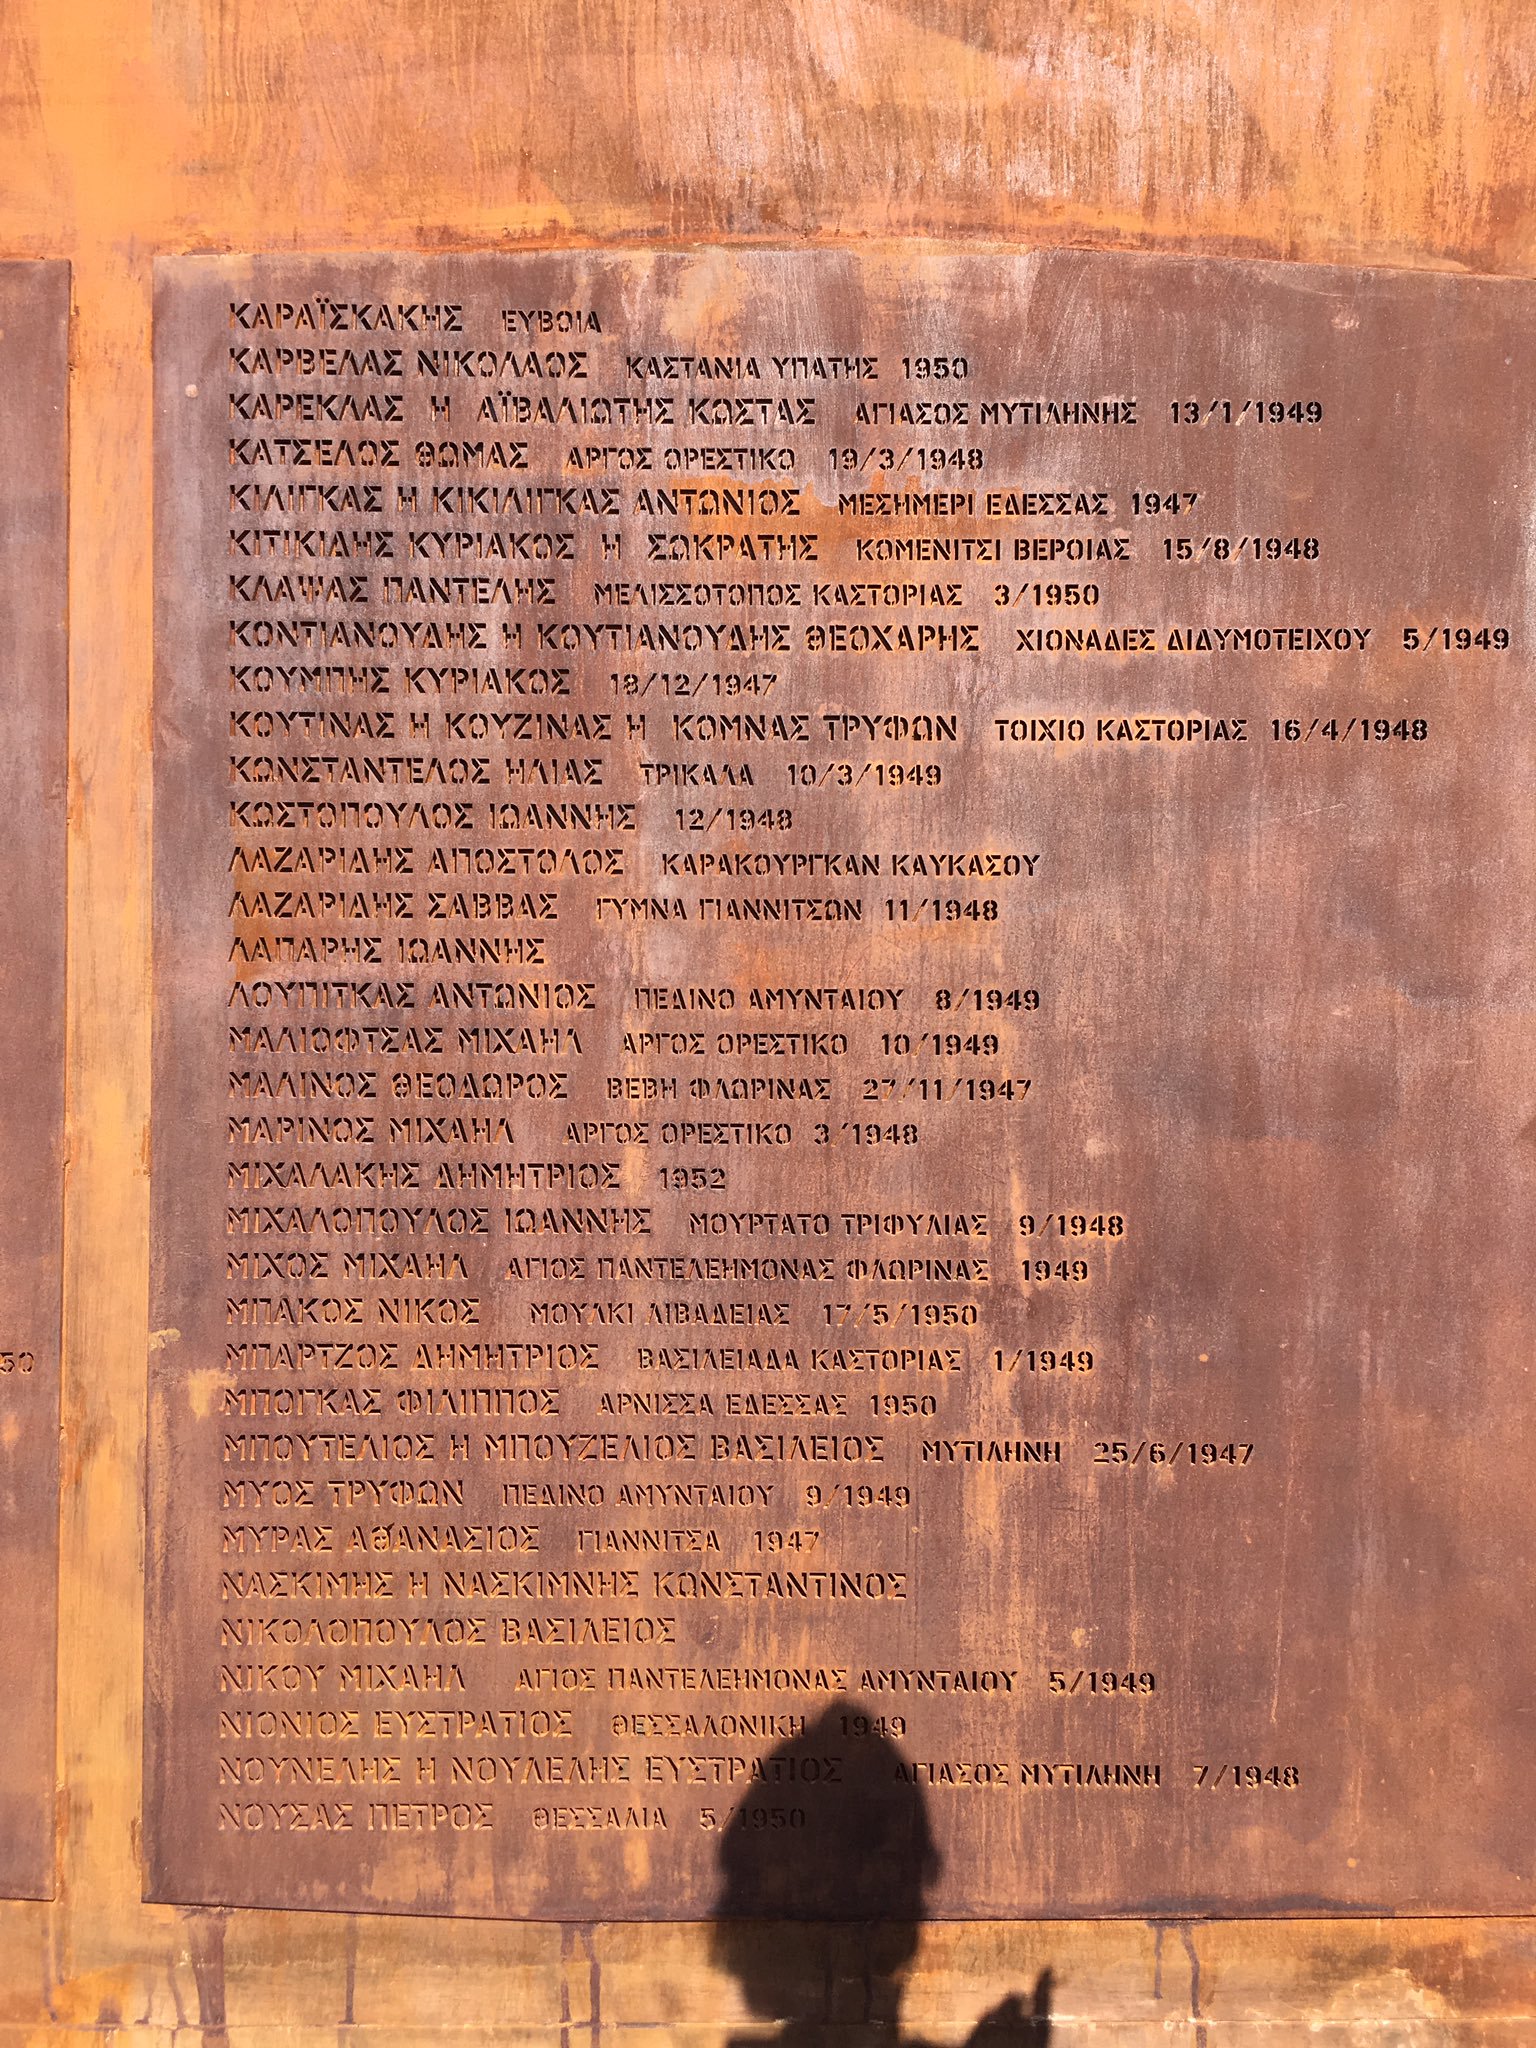 ΚΑΡΑΪΣΚΑΚΗΣ ΕΥΒΟΙΑ
ΚΑΡΒΕΛΑΣ ΝΙΚΟΛΑΟΣ ΚΑΣΤΑΝΙΑ ΥΠΑΤΗΣ 1950
ΚΑΡΕΚΛΑΣ Η ΑΪΒΑΛΙΩΤΗΣ ΚΩΣΤΑΣ ΑΓΙΑΣΟΣ ΜΥΤΙΛΗΝΗΣ 13/1/1949
ΚΑΤΣΕΛΟΣ ΘΩΜΑΣ ΑΡΓΟΣ ΟΡΕΣΤΙΚΟ 19/3/1948
ΚΙΛΙΓΚΑΣ Η ΚΙΚΙΛΙΓΚΑΣ ΑΝΤΩΝΙΟΣ ΜΕΣΗΜΕΡΙ ΕΔΕΣΣΑΣ 1947
ΚΙΤΙΚΙΔΗΣ ΚΥΡΙΑΚΟΣ Η ΣΩΚΡΑΤΗΣ ΚΟΜΕΝΙΤΣΙ ΒΕΡΟΙΑΣ 15/8/1948
ΚΛΑΨΑΣ ΠΑΝΤΕΛΗΣ ΜΕΛΙΣΣΟΤΟΠΟΣ ΚΑΣΤΟΡΙΑΣ 3/1950
ΚΟΝΤΙΑΝΟΥΔΗΣ Η ΚΟΥΤΙΑΝΟΥΔΗΣ ΘΕΟΧΑΡΗΣ ΧΙΟΝΑΔΕΣ ΔΙΔΥΜΟΤΕΙΧΟΥ 5/1949
ΚΟΥΜΠΗΣ ΚΥΡΙΑΚΟΣ 18/12/1947
ΚΟΥΤΙΝΑΣ Η ΚΟΥΖΙΝΑΣ Η ΚΟΜΝΑΣ ΤΡΥΦΩΝ ΤΟΙΧΙΟ ΚΑΣΤΟΡΙΑΣ 16/4/1948
ΚΩΝΣΤΑΝΤΕΛΟΣ ΗΛΙΑΣ ΤΡΙΚΑΛΑ 10/3/1949
ΚΩΣΤΟΠΟΥΛΟΣ ΙΩΑΝΝΗΣ 12/1948
ΛΑΖΑΡΙΔΗΣ ΑΠΟΣΤΟΛΟΣ ΚΑΡΑΚΟΥΡΓΚΑΝ ΚΑΥΚΑΣΟΥ
ΛΑΖΑΡΙΔΗΣ ΣΑΒΒΑΣ ΓΥΜΝΑ ΓΙΑΝΝΙΤΣΩΝ 11/1948
ΛΑΠΑΡΗΣ ΙΩΑΝΝΗΣ
ΛΟΥΠΙΤΚΑΣ ΑΝΤΩΝΙΟΣ ΠΕΔΙΝΟ ΑΜΥΝΤΑΙΟΥ 8/1949
ΜΑΛΙΩΦΤΣΑΣ ΜΙΧΑΗΛ ΑΡΓΟΣ ΟΡΕΣΤΙΚΟ 10/1949
ΜΑΛΙΝΟΣ ΘΕΟΔΩΡΟΣ ΒΕΒΗ ΦΛΩΡΙΝΑΣ 27/11/1947
ΜΑΡΙΝΟΣ ΜΙΧΑΗΛ ΑΡΓΟΣ ΟΡΕΣΤΙΚΟ 3/1948
ΜΙΧΑΛΑΚΗΣ ΔΗΜΗΤΡΙΟΣ 1952
ΜΙΧΑΛΟΠΟΥΛΟΣ ΙΩΑΝΝΗΣ ΜΟΥΡΤΑΤΟ ΤΡΙΦΥΛΙΑΣ 9/1948
ΜΙΧΟΣ ΜΙΧΑΗΛ ΑΓΙΟΣ ΠΑΝΤΕΛΕΗΜΟΝΑΣ ΦΛΩΡΙΝΑΣ 1949
ΜΠΑΚΟΣ ΝΙΚΟΣ ΜΟΥΛΚΙ ΛΙΒΑΔΕΙΑΣ 17/5/1950
50
ΜΠΑΡΤΖΟΣ ΔΗΜΗΤΡΙΟΣ ΒΑΣΙΛΕΙΑΔΑ ΚΑΣΤΟΡΙΑΣ 1/1949
ΜΠΟΓΚΑΣ ΦΙΛΙΠΠΟΣ ΑΡΝΙΣΣΑ ΕΔΕΣΣΑΣ 1950
ΜΠΟΥΤΕΛΙΟΣ Η ΜΠΟΥΖΕΛΙΟΣ ΒΑΣΙΛΕΙΟΣ ΜΥΤΙΛΗΝΗ 25/6/1947
ΜΥΟΣ ΤΡΥΦΩΝ ΠΕΔΙΝΟ ΑΜΥΝΤΑΙΟΥ 9/1949
ΜΥΡΑΣ ΑΘΑΝΑΣΙΟΣ ΓΙΑΝΝΙΤΣΑ 1947
ΝΑΣΚΙΜΗΣ Η ΝΑΣΚΙΜΝΗΣ ΚΩΝΣΤΑΝΤΙΝΟΣ
ΝΙΚΟΛΟΠΟΥΛΟΣ ΒΑΣΙΛΕΙΟΣ
ΝΙΚΟΥ ΜΙΧΑΗΛ ΑΓΙΟΣ ΠΑΝΤΕΛΕΗΜΟΝΑΣ ΑΜΥΝΤΑΙΟΥ 5/1949
ΝΙΟΝΙΟΣ ΕΥΣΤΡΑΤΙΟΣ ΘΕΣΣΑΛΟΝΙΚΗ 1949
ΝΟΥΝΕΛΗΣ Η ΝΟΥΛΕΛΗΣ ΕΥΣΤΡΑΤΙΟΣ ΑΓΙΑΣΟΣ ΜΥΤΙΛΗΝΗ 7/1948
ΝΟΥΣΑΣ ΠΕΤΡΟΣ ΘΕΣΣΑΛΙΑ 5/1950